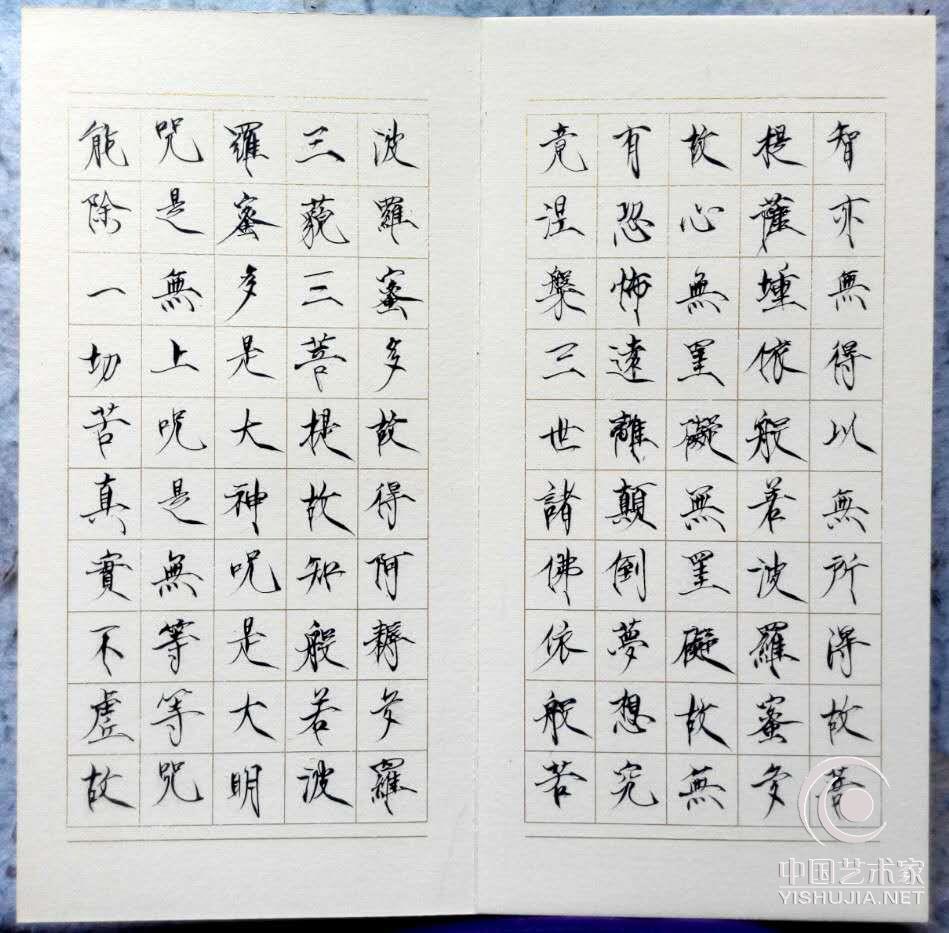 智亦無得以無所得故菩
提薩埵依般若波羅蜜多
故心無罣礙無罣礙故無
有恐怖遠離顛倒夢想究
竟涅槃三世諸佛依般若
波羅蜜多故得阿耨多羅
三藐三菩提故知般若波
羅蜜多是大神呪是大明
咒是無上呪是無等等咒
能除一切苦真實不虛故
中国艺术家
YISHUJIA.NET